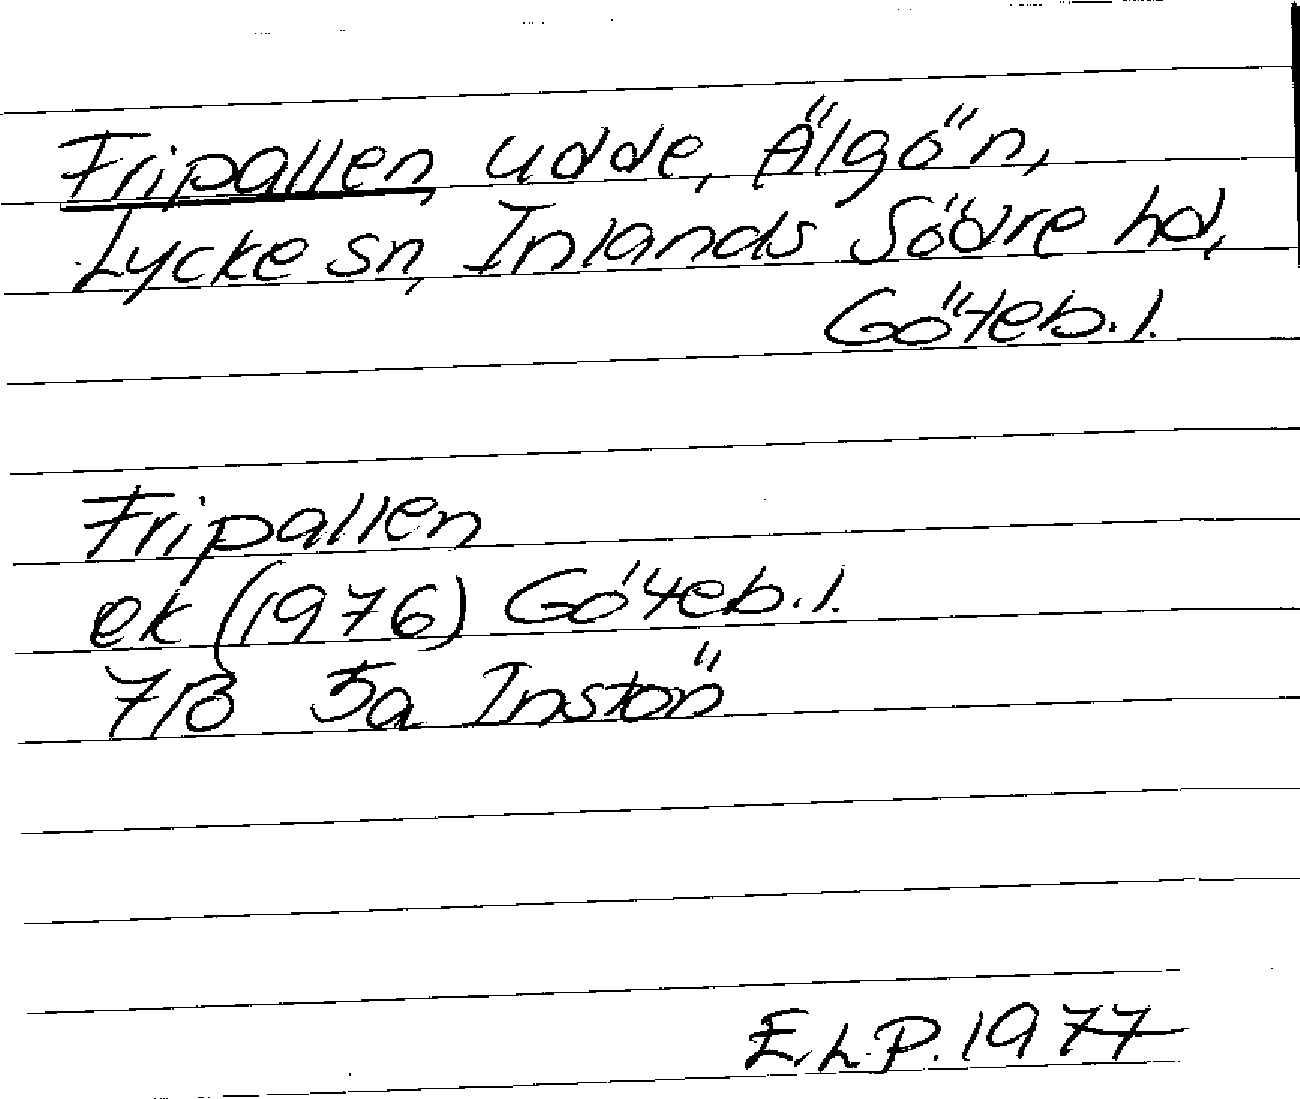 Fripallen, udde, Älgön,
Lycke sn, Inlands Södre hd,
Göteb. l.
Fripallen
ek (1976) Göteb. l.
7B 5a Instön
E.L.P. 1977